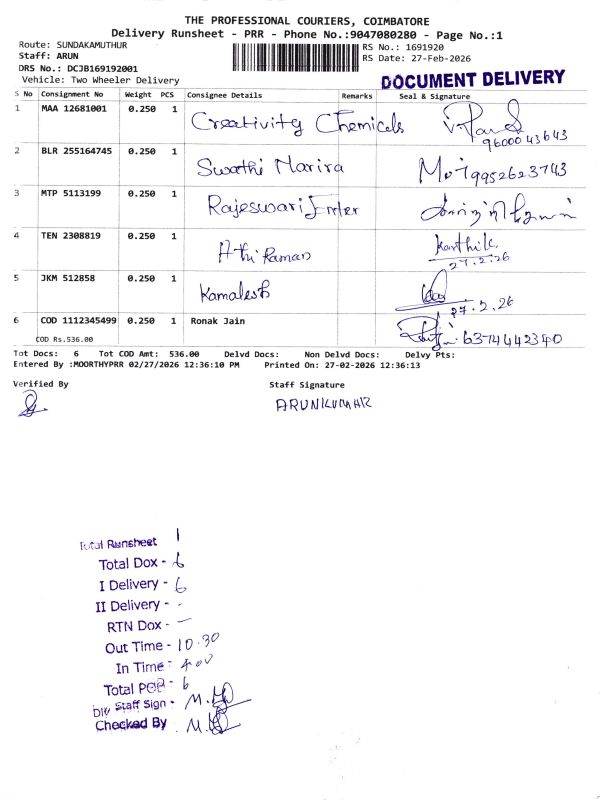 THE PROFESSIONAL COURIERS, COIMBATORE
Delivery Runsheet - PRR - Phone No.:9047080280 - Page No.:1
Route: SUNDAKAMUTHUR
RS No.: 1691920
Staff: ARUN
RS Date: 27-Feb-2026
DRS No.: DCJB169192001
Vehicle: Two Wheeler Delivery
DOCUMENT DELIVERY
S No Consignment No Weight PCS Consignee Details Remarks Seal & Signature
1 MAA 12681001 0.250 1 Creativity Chemicals
96000 43643
2 BLR 255164745 0.250 1 Swathi 9952623743
3 MTP 5113199 0.250 1 Rajeswari
4 TEN 2308819 0.250 1 Athi Raman Karthik
27.2.26
5 JKM 512858 0.250 1 Kamalesh
27.2.26
6 COD 1112345499 0.250 1 Ronak Jain 6374442340
COD Rs.536.00
Tot Docs: 6 Tot COD Amt: 536.00 Delvd Docs: Non Delvd Docs: Delvy Pts:
Entered By :MOORTHYPRR 02/27/2026 12:36:10 PM Printed On: 27-02-2026 12:36:13
Verified By Staff Signature
ARUNKUMAR
Total Runsheet 1
Total Dox - 6
I Delivery - 6
II Delivery - -
RTN Dox - —
Out Time - 10.30
In Time - 4.00
Total POD - 6
Div Staff Sign -
Checked By